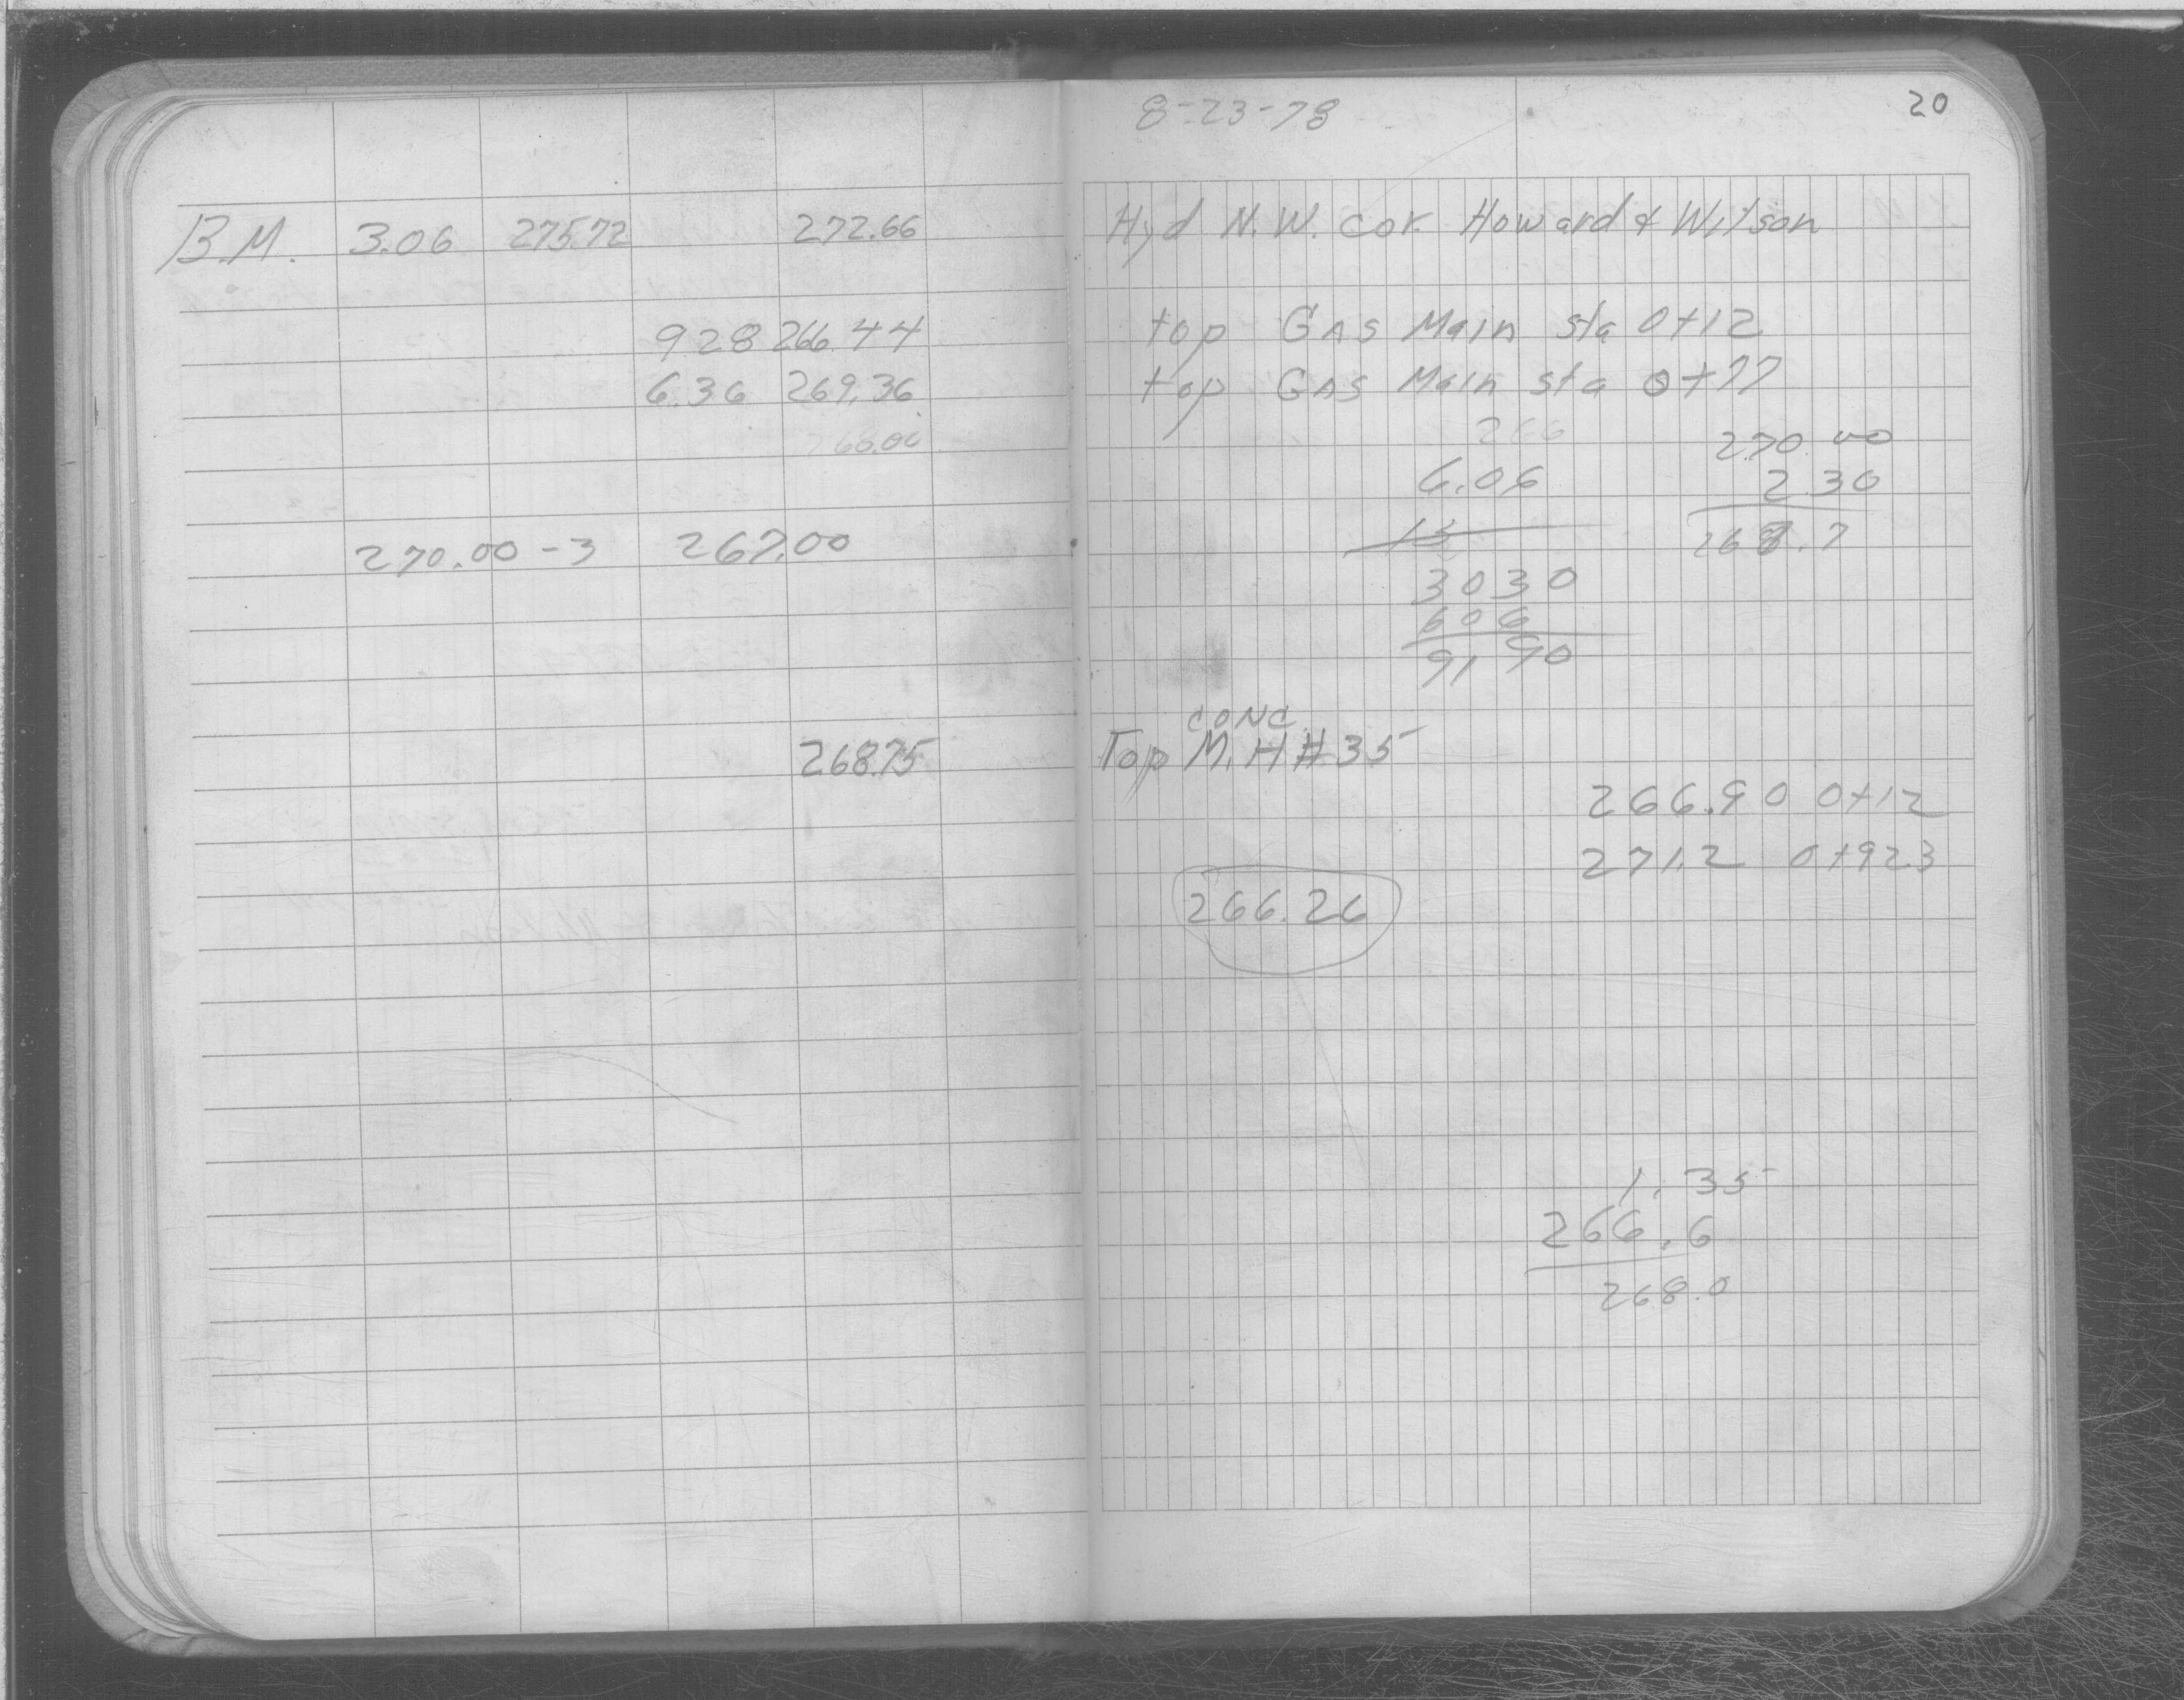 B.M. 3.06 275.72 272.66
928 266.44
6.36 269.36
266.00
270.00 - 3 267.00
268.75
8-23-78
20
Hyd N.W. cor. Howard & Wilson
top Gas Main sta 0+12
top Gas Main sta 0+77
266
6.06
15
3030
606
91 90
270.00
2.30
268.7
CONC.
Top M.H #35
266.90 0+12
271.2 0+92.3
266.26
1.35
266.6
268.0